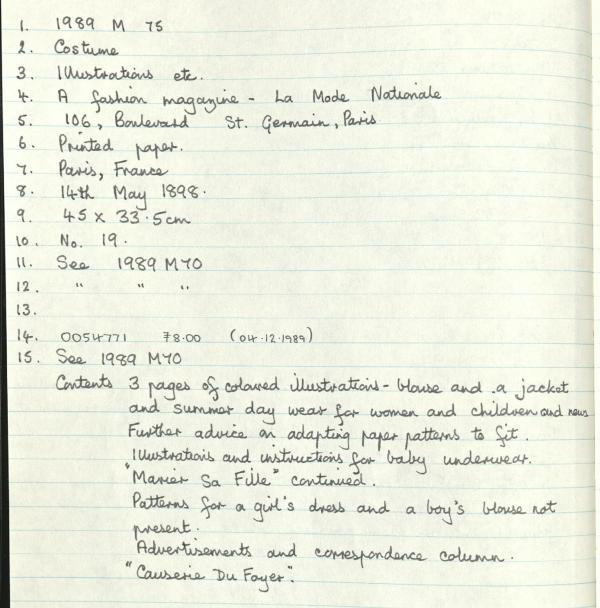 1. 1989 M 75
2. Costume
3. Illustrations etc.
4. A fashion magazine - La Mode Nationale
5. 106, Boulevard St. Germain, Paris
6. Printed paper.
7. Paris, France
8. 14th May 1898.
9. 45 x 33.5cm
10. No. 19.
11. See 1989 M70
12. " " "
13.
14. 0054771 78.00 (04.12.1989)
15. See 1989 M70
Contents 3 pages of coloured illustrations - blouse and a jacket
and summer day wear for women and children and news
Further advice on adapting paper patterns to fit.
Illustrations and instructions for baby underwear.
"Marier Sa Fille" continued.
Patterns for a girl's dress and a boy's blouse not
present.
Advertisements and correspondence column.
"Causerie Du Foyer".